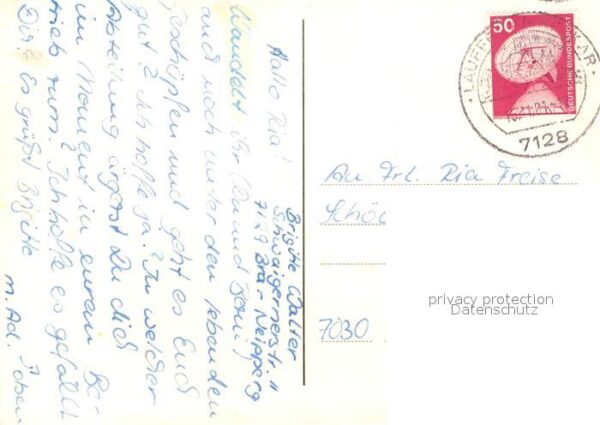 Hallo Ria!
Wandelt Ihr (Du und Toni)
und noch unter den lebenden
Geschöpfen und geht es Euch
gut? Ich hoffe ja. In welcher
Abteilung ärgerst Du dich
im Moment in eurem Be-
trieb rum. Ich hoffe es gefällt
Dir? Es grüßt Brigitte
m. Ad. oben
Brigitte Walter
Schwaigernerstr. 11
7129 Bra-Neipperg
50
DEUTSCHE BUNDESPOST
LAUFFEN
7128
An Frl. Ria Freise
Schö
7030
privacy protection
Datenschutz